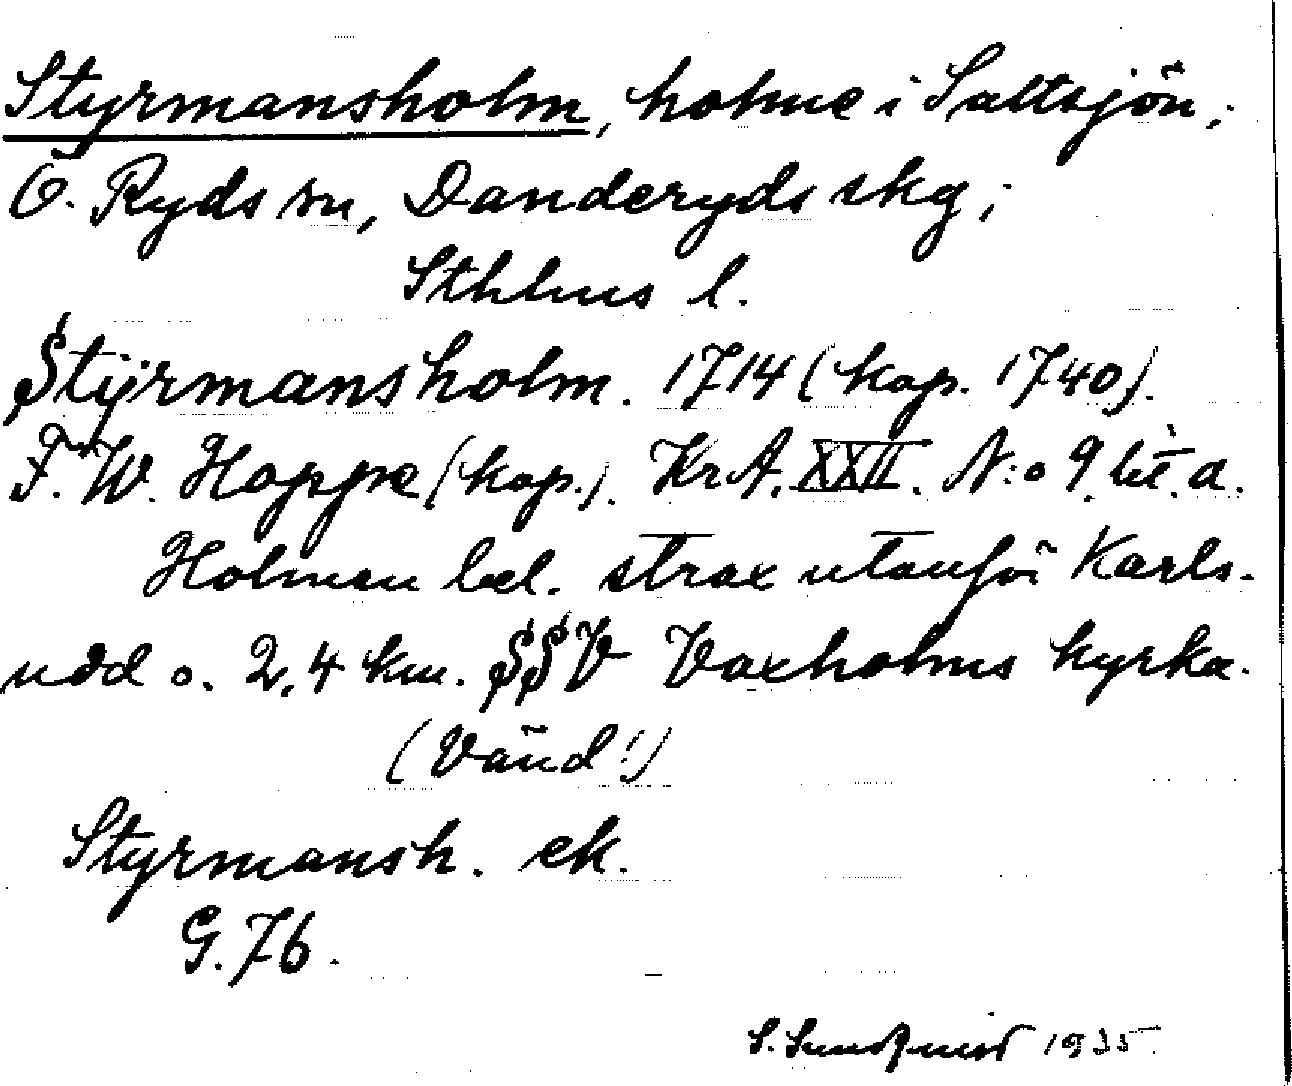 Styrmansholm, holme i Saltsjön,
Ö. Ryds sn, Danderyds skg;
Sthlms l.
Stÿrmansholm. 1714 (kop. 1740).
F. W. Hoppe (kop.). KrA. XXII. N:o 9. lit. a.
Holmen bel. strax utanför Karls-
udd o. 2,4 km. SSV Vaxholms kyrka.
(Vänd!)
Styrmansh. ek.
G. 76.
S. Sundqvist 1935